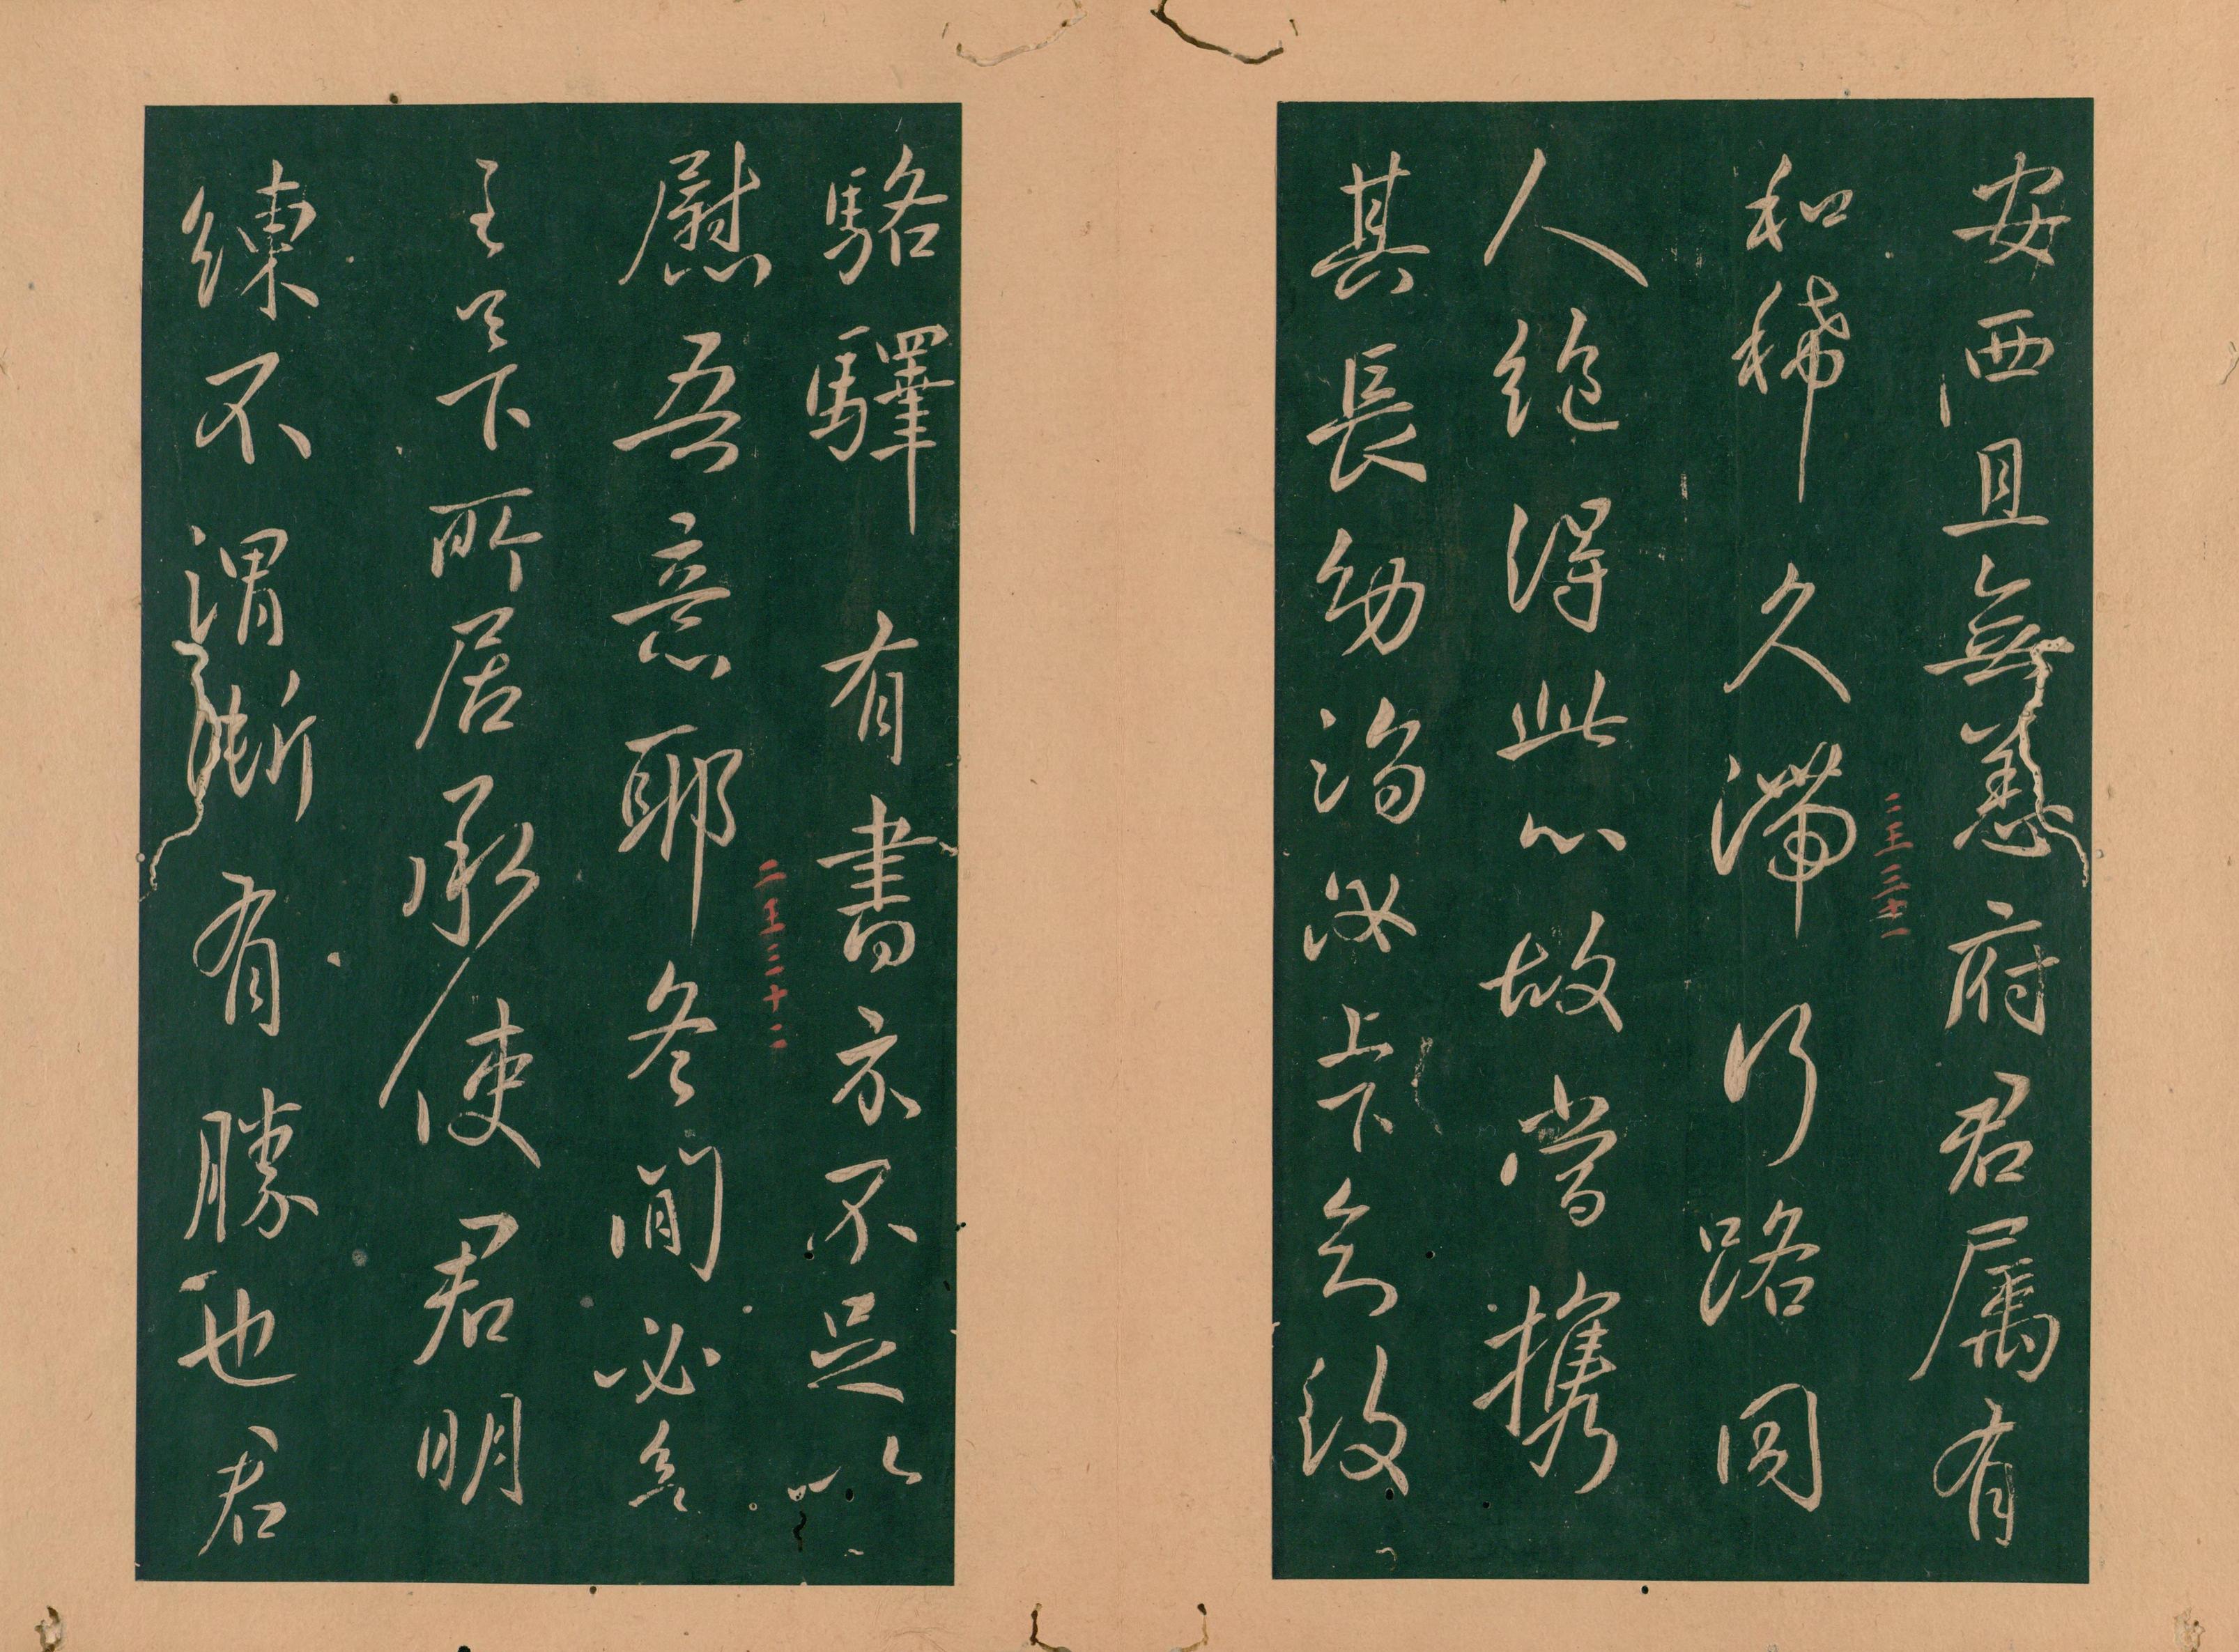 安西且無恙府君属有
和稀久滞行路同
二王三十一
人絶得此心故當攜
其長幼詣汝上下
駱驛有書亦不足以
二王三十二
慰吾意耶冬間必
至足下所居承使君明
練不謂斯有勝也君